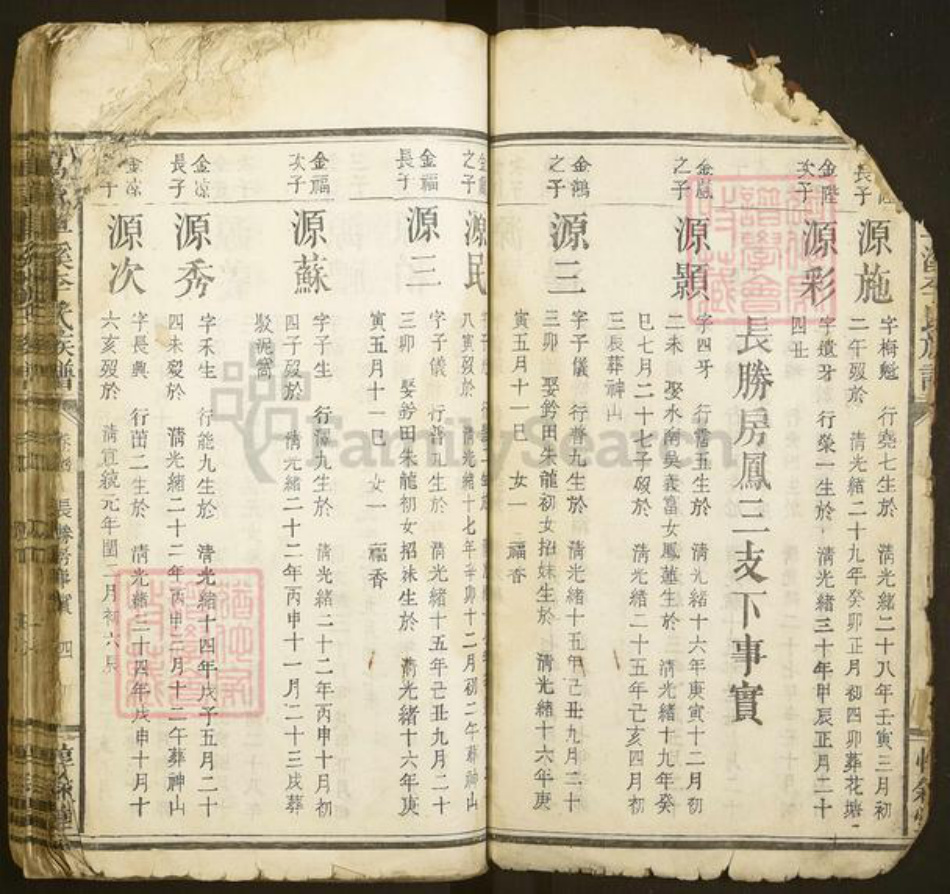 長子 源施 字梅魁 行堯七生於 清光緒二十八年壬寅三月初
二午歿於 清光緒二十九年癸卯正月初四卯葬花塘
金陞次子 源彩 字遺牙 行榮一生於 清光緒三十年甲辰正月二十
四丑
長勝房鳳三支下事實
金嵐之子 源顥 字四牙 行霑五生於 清光緒十六年庚寅十二月初
二未 娶水南吳義富女鳳蓮生於 清光緒十九年癸
巳七月二十七子歿於 清光緒二十五年己亥四月初
三辰葬神山
金鴻之子 源三 字子儀 行普九生於 清光緒十五年己丑九月二十
三卯 娶鈐田朱龍初女招妹生於 清光緒十六年庚
寅五月十一巳 女一 福香
之子 源民
八寅歿於 清光緒十七年辛卯十二月初二午葬神山
金福長子 源三 字子儀 行普九生於 清光緒十五年己丑九月二十
三卯 娶鈐田朱龍初女招妹生於 清光緒十六年庚
寅五月十一巳 女一 福香
金福次子 源蘇 字子生 行澤九生於 清光緒二十二年丙申十月初
四子歿於 清光緒二十二年丙申十一月二十三戌葬
駁泥窩
金涼長子 源秀 字禾生 行能九生於 清光緒十四年戊子五月二十
四未歿於 清光緒二十二年丙申三月十二午葬神山
金涼次子 源次 字長興 行茁二生於 清光緒三十四年戊申十月十
六亥歿於 清宣統元年閏二月初六辰
氏族譜
長勝房事實 四
FamilySearch